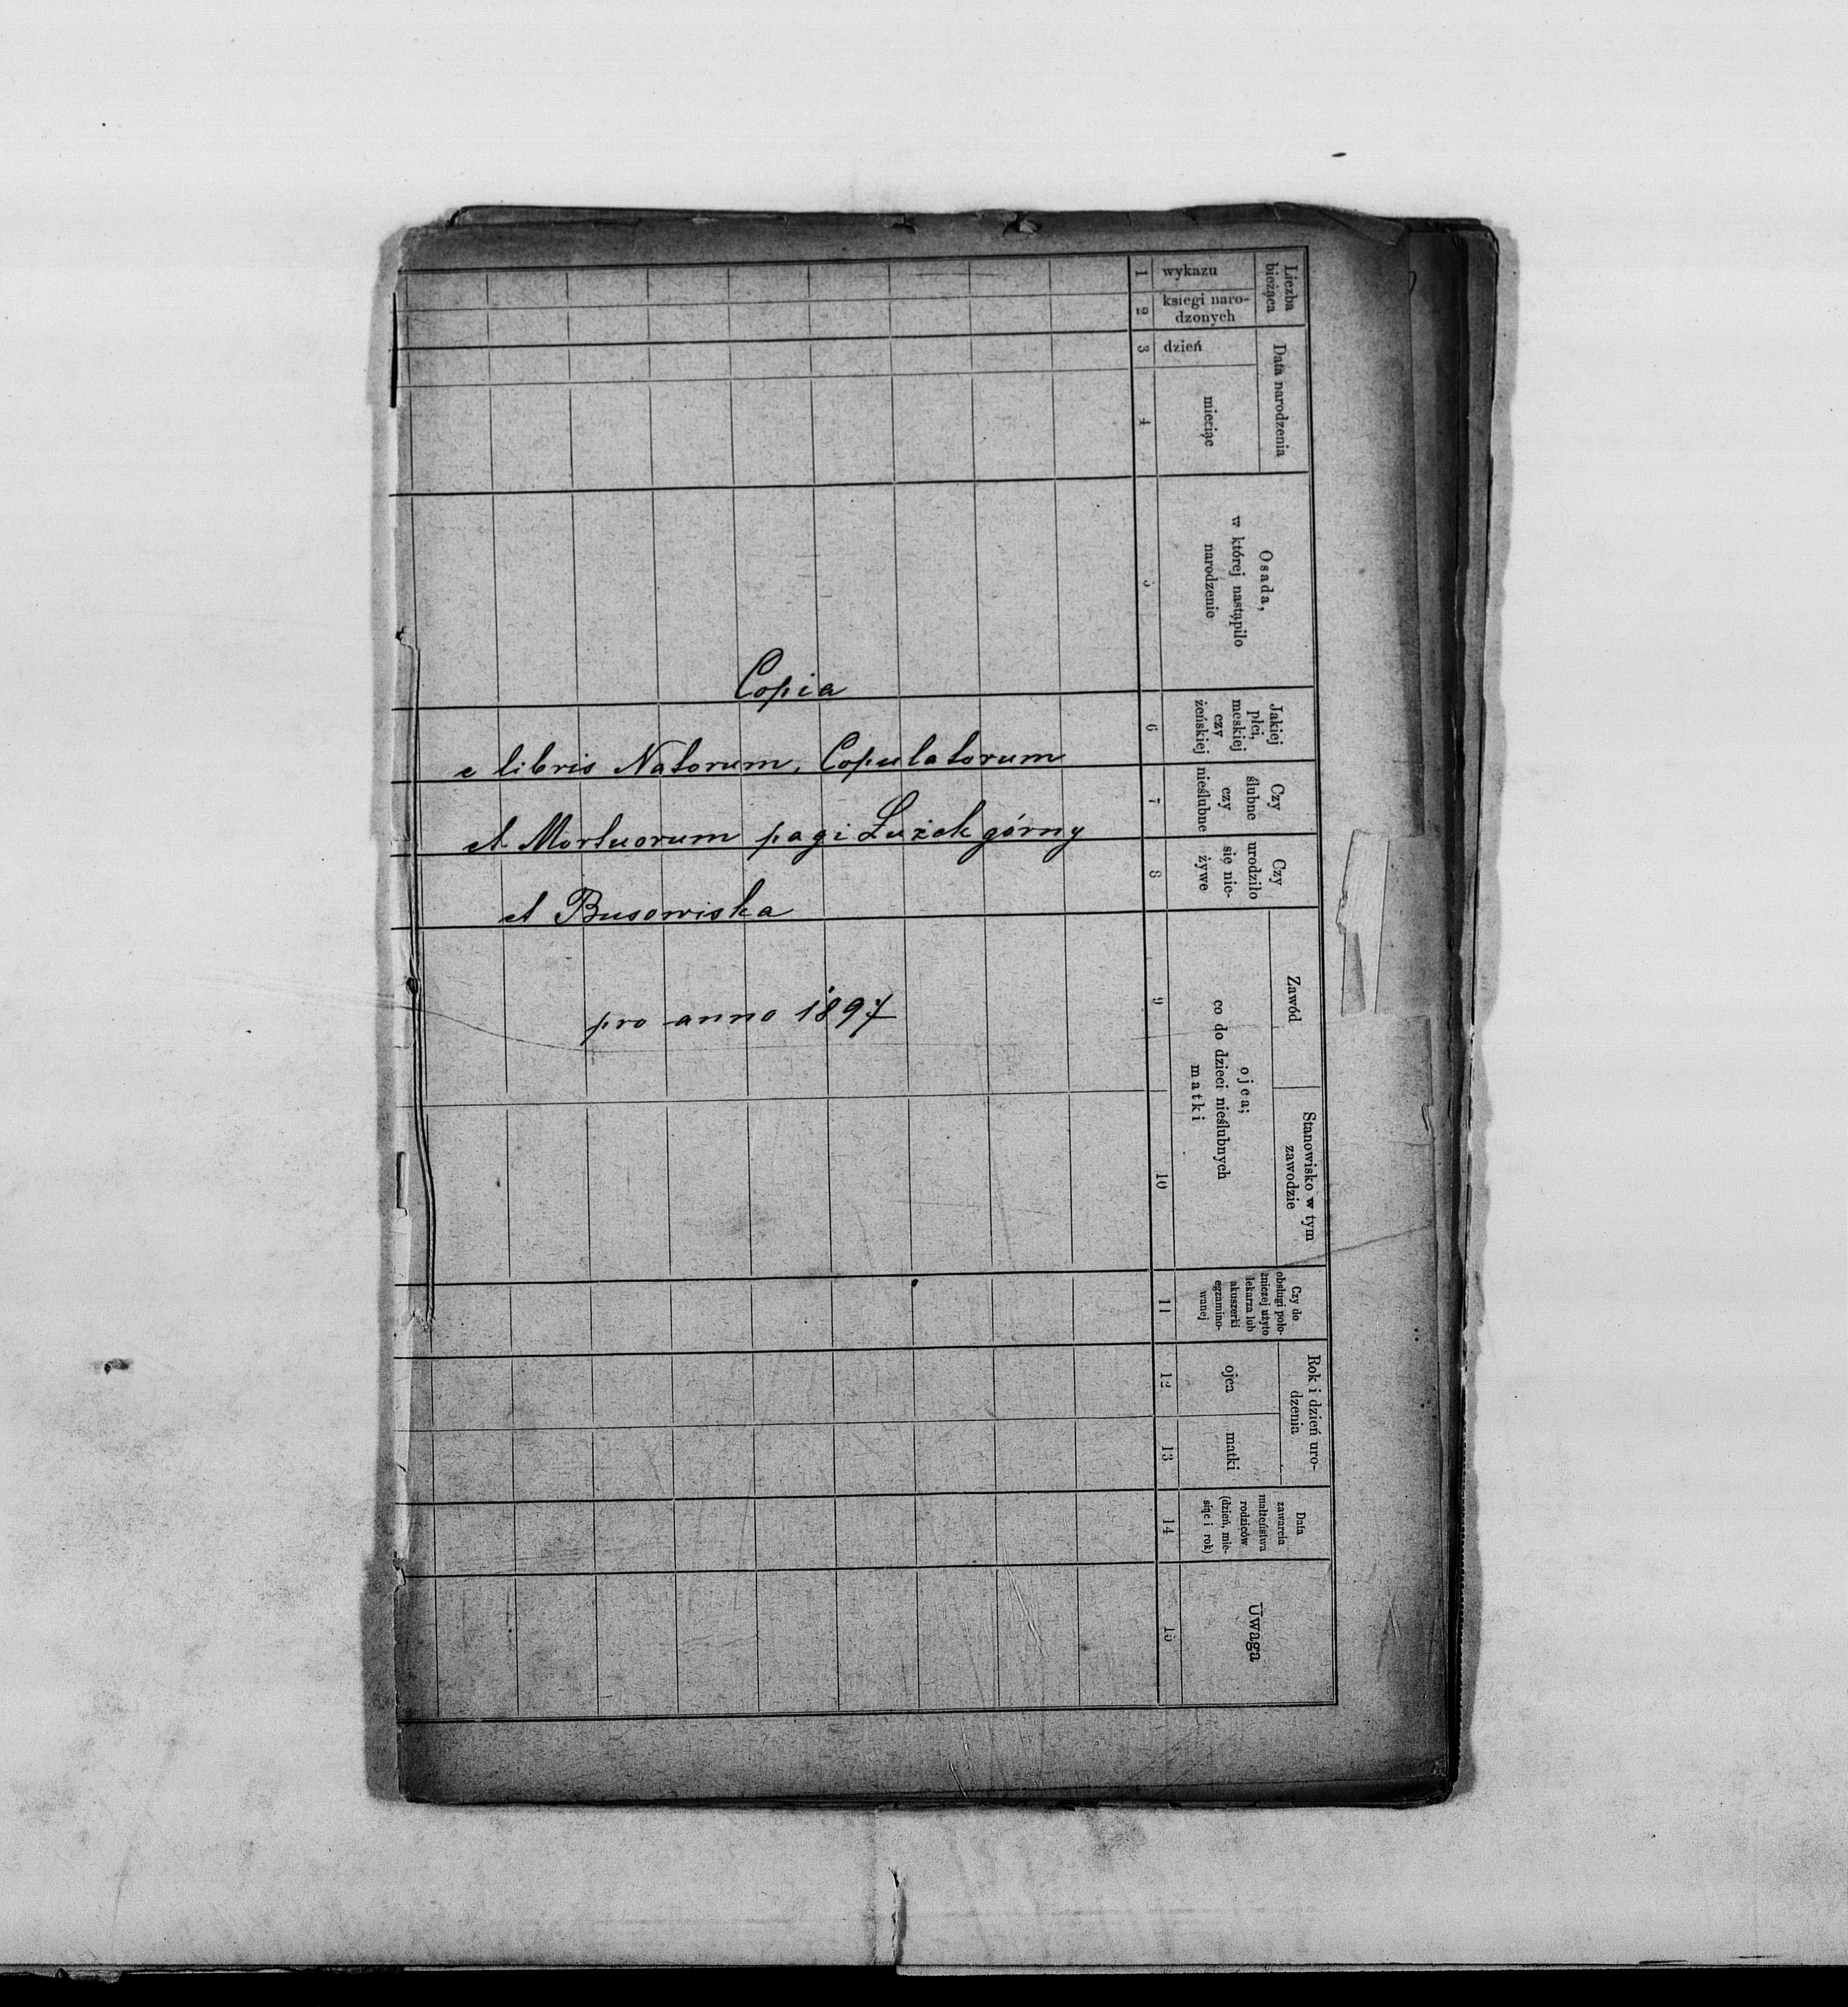 Copia
e libris Natorum, Copulatorum
et Mortuorum pagi Łużek górny
et Busowiska
pro anno 1897
Liczba
bieżąca
wykazu
1
księgi naro-
dzonych
2
Data narodzenia
dzień
3
miesiąc
4
Osada,
w której nastąpiło
narodzenie
5
Jakiej
płci,
męskiej
czy
żeńskiej
6
Czy
ślubne
czy
nieślubne
7
Czy
urodziło
się nie-
żywe
8
Zawód
9
Stanowisko w tym
zawodzie
10
ojca;
co do dzieci nieślubnych
matki
Czy do
obsługi poło-
żniczej użyto
lekarza lub
akuszerki
egzamino-
wanej
11
Rok i dzień uro-
dzenia
ojca
12
matki
13
Data
zawarcia
małżeństwa
rodziców
(dzień, mie-
siąc i rok)
14
Uwaga
15